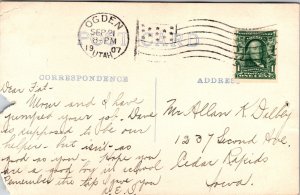 OGDEN
SEP 21
8-PM
19 07
UTAH
POST CARD
CORRESPONDENCE
ADDRESS
Dear Fat-
Mow and I have
jumped your job. Dave
is supposed to be our
helper - but isn't as
good as you. Hope you
are a good boy in school
remember the tip I gave you
H.E.S.
Mr Allan K Delby
1237 Second Ave.
Cedar Rapids
Iowa.